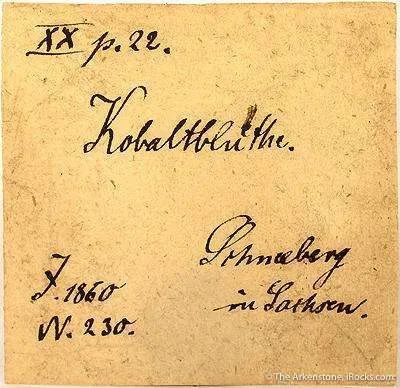 XX p. 22.
Kobaltblüthe.
Schneeberg
in Sachsen.
J. 1860
N. 230.
© The Arkenstone, iRocks.com